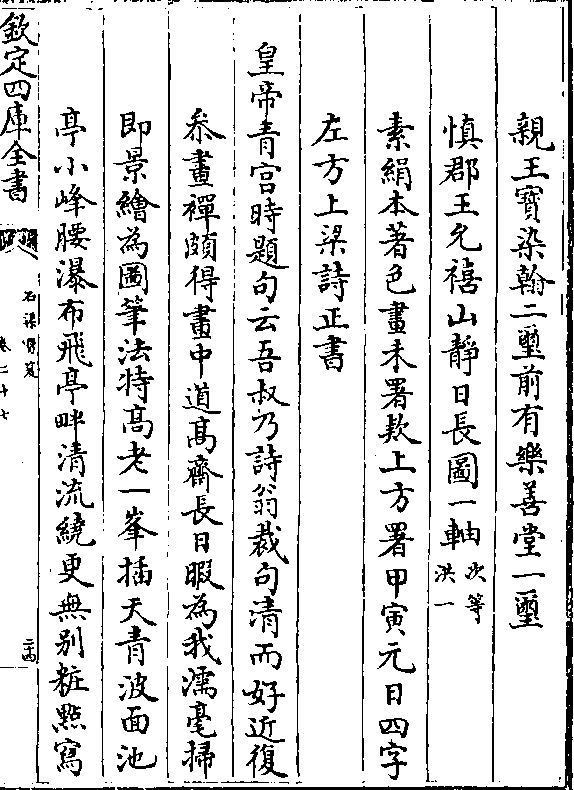 親王寶染翰二璽前有樂善堂一璽
慎郡王允禧山靜日長圖一軸次等洪一
素絹本著色畫未署款上方署甲寅元日四字
左方上梁詩正書
皇帝青宮時題句云吾叔乃詩翁裁句清而好近復
叅畫禪頗得畫中道髙齋長日暇為我濡毫掃
即景繪為圖筆法特髙老一峯插天青波面池
亭小峰腰瀑布飛亭畔清流繞更無别粧點寫
欽定四庫全書
石渠寶笈
卷二十七
二四